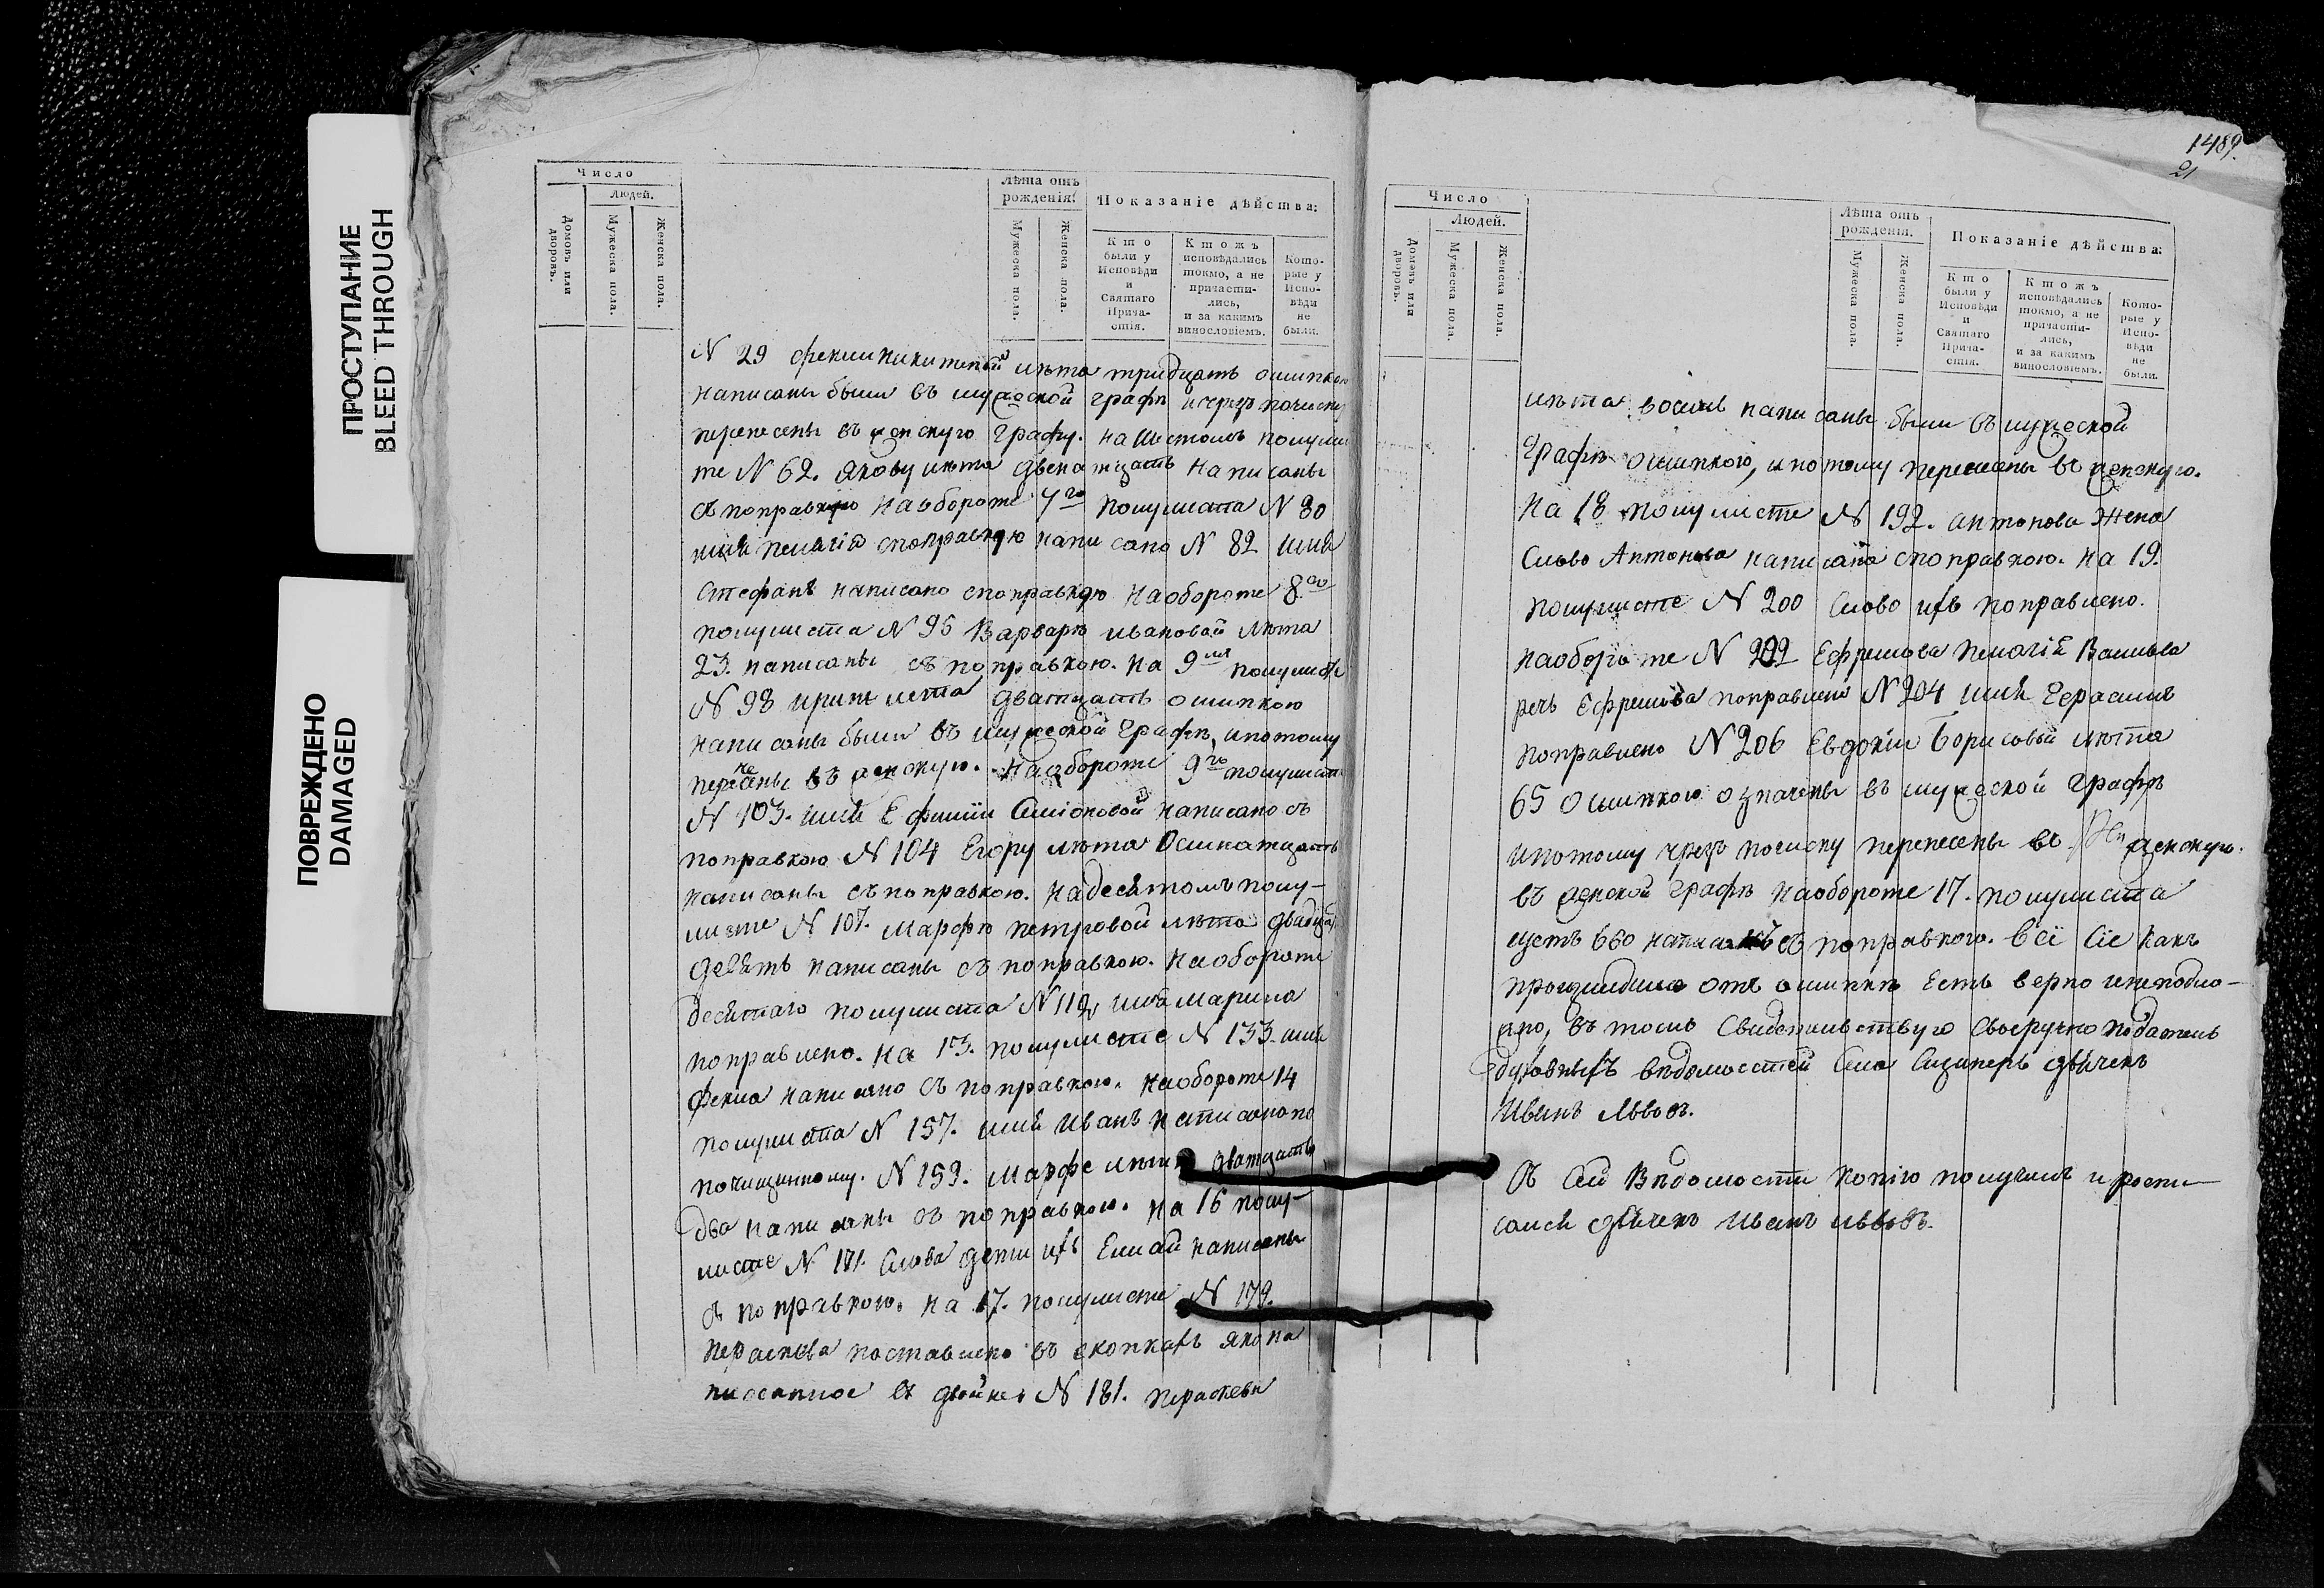 ПРОСТУПАНИЕ
BLEED THROUGH
ПОВРЕЖДЕНО
DAMAGED
Число
Людей.
Домовъ или дворовъ.
Мужеска пола.
Женска пола.
Лѣта отъ рожденія.
Мужеска пола.
Женска пола.
Показаніе дѣйства:
Кто были у Исповѣди и Святаго Прича-стія.
Ктожъ исповѣдались токмо, а не причасти-лись, и за какимъ винословіемъ.
Кото-рые у Испо-вѣди не были.
N 29 Феклы Никитиной лѣта тридцать ошипкою
написаны были въ мужеской графѣ и чрезъ почиску
перенесены въ женскую графу. На шестомъ полули
сте N 62. Якову лѣта двенатцать написаны
съ поправкою на обороте 7го полулиста N 80
имя Пелагія споправкою написано N 82 имя
Стефанъ написано споправкою на обороте 8го
полулиста N 95 Варварѣ Ивановой лѣта
23. написаны съ поправкою. На 9мъ полулисте
N 98 Иринѣ лета дватцать ошипкою
написаны были въ мужеской графѣ, и потому
перенесены въ женскую. На обороте 9го полулиста
N 103. имя Ефиміи Симіоновой написано съ
поправкою N 104 Егору лѣта осмнатцать
написаны съ поправкою. На десятомъ полу-
листе N 107. Марфѣ Петровой лѣта двадца
девять написаны съ поправкою. На обороте
десятаго полулиста N 112 имя Марина
поправлено. На 13. полулисте N 133. имя
Фекла написано съ поправкою. На обороте 14
полулиста N 157. имя Иванъ написано по
почищенному. N 159. Марфе лѣта дватцать
два написаны съ поправкою. На 16 полу-
листе N 171. слова дети ихъ написаны
съ поправкою. На 17. полулисте N 179.
Параскева поставлено въ скопкахъ яко на
писанное въ двойне. N 181. Параскеве
1489.
21
Число
Людей.
Домовъ или дворовъ.
Мужеска пола.
Женска пола.
Лѣта отъ рожденія.
Мужеска пола.
Женска пола.
Показаніе дѣйства:
Кто были у Исповѣди и Святаго Прича-стія.
Ктожъ исповѣдались токмо, а не причасти-лись, и за какимъ винословіемъ.
Кото-рые у Испо-вѣди не были.
лѣта восемь написаны были въ мужеской
графѣ ошипкою, и потому перенесены въ женскую.
На 18 полулисте N 192. Антонова жена
слово Антонова написано споправкою. На 19.
полулисте N 200 слово ихъ поправлено.
на обороте N 202 Ефремова Пелагія Васильева
речь Ефремова поправлена N 204 имя Герасимъ
поправлено N 206 Евдокіи Борисовой лѣта
65 ошипкою означены въ мужеской графѣ
и потому чрезъ почиску перенесены въ женскую.
въ женской графѣ на обороте 17. полулиста
съ поправкою. Всѣ сіе какъ
произшедшее отъ ошипки есть верно и неподло-
жно, въ томъ свидетельствую своеручно податель
духовныхъ вѣдомостей села дьячекъ
Иванъ Львовъ.
Съ сей вѣдомости копію получилъ и роспи-
сался дьячекъ Иванъ Львовъ.